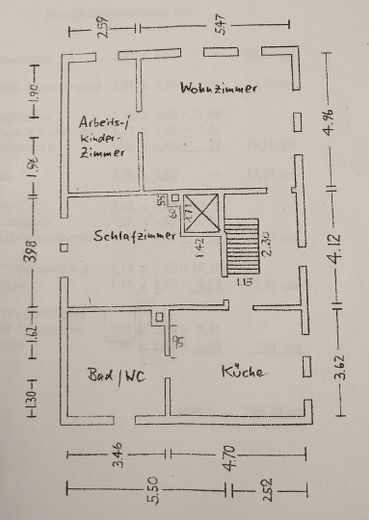 2.59
5.47
Wohnzimmer
Arbeits-/
Kinder-
Zimmer
1.90
1.96
3.98
1.62
1.30
4.96
4.12
3.62
55
60
1.73
1.42
2.30
1.15
Schlafzimmer
95
Bad/WC
Küche
3.46
4.70
5.50
2.52